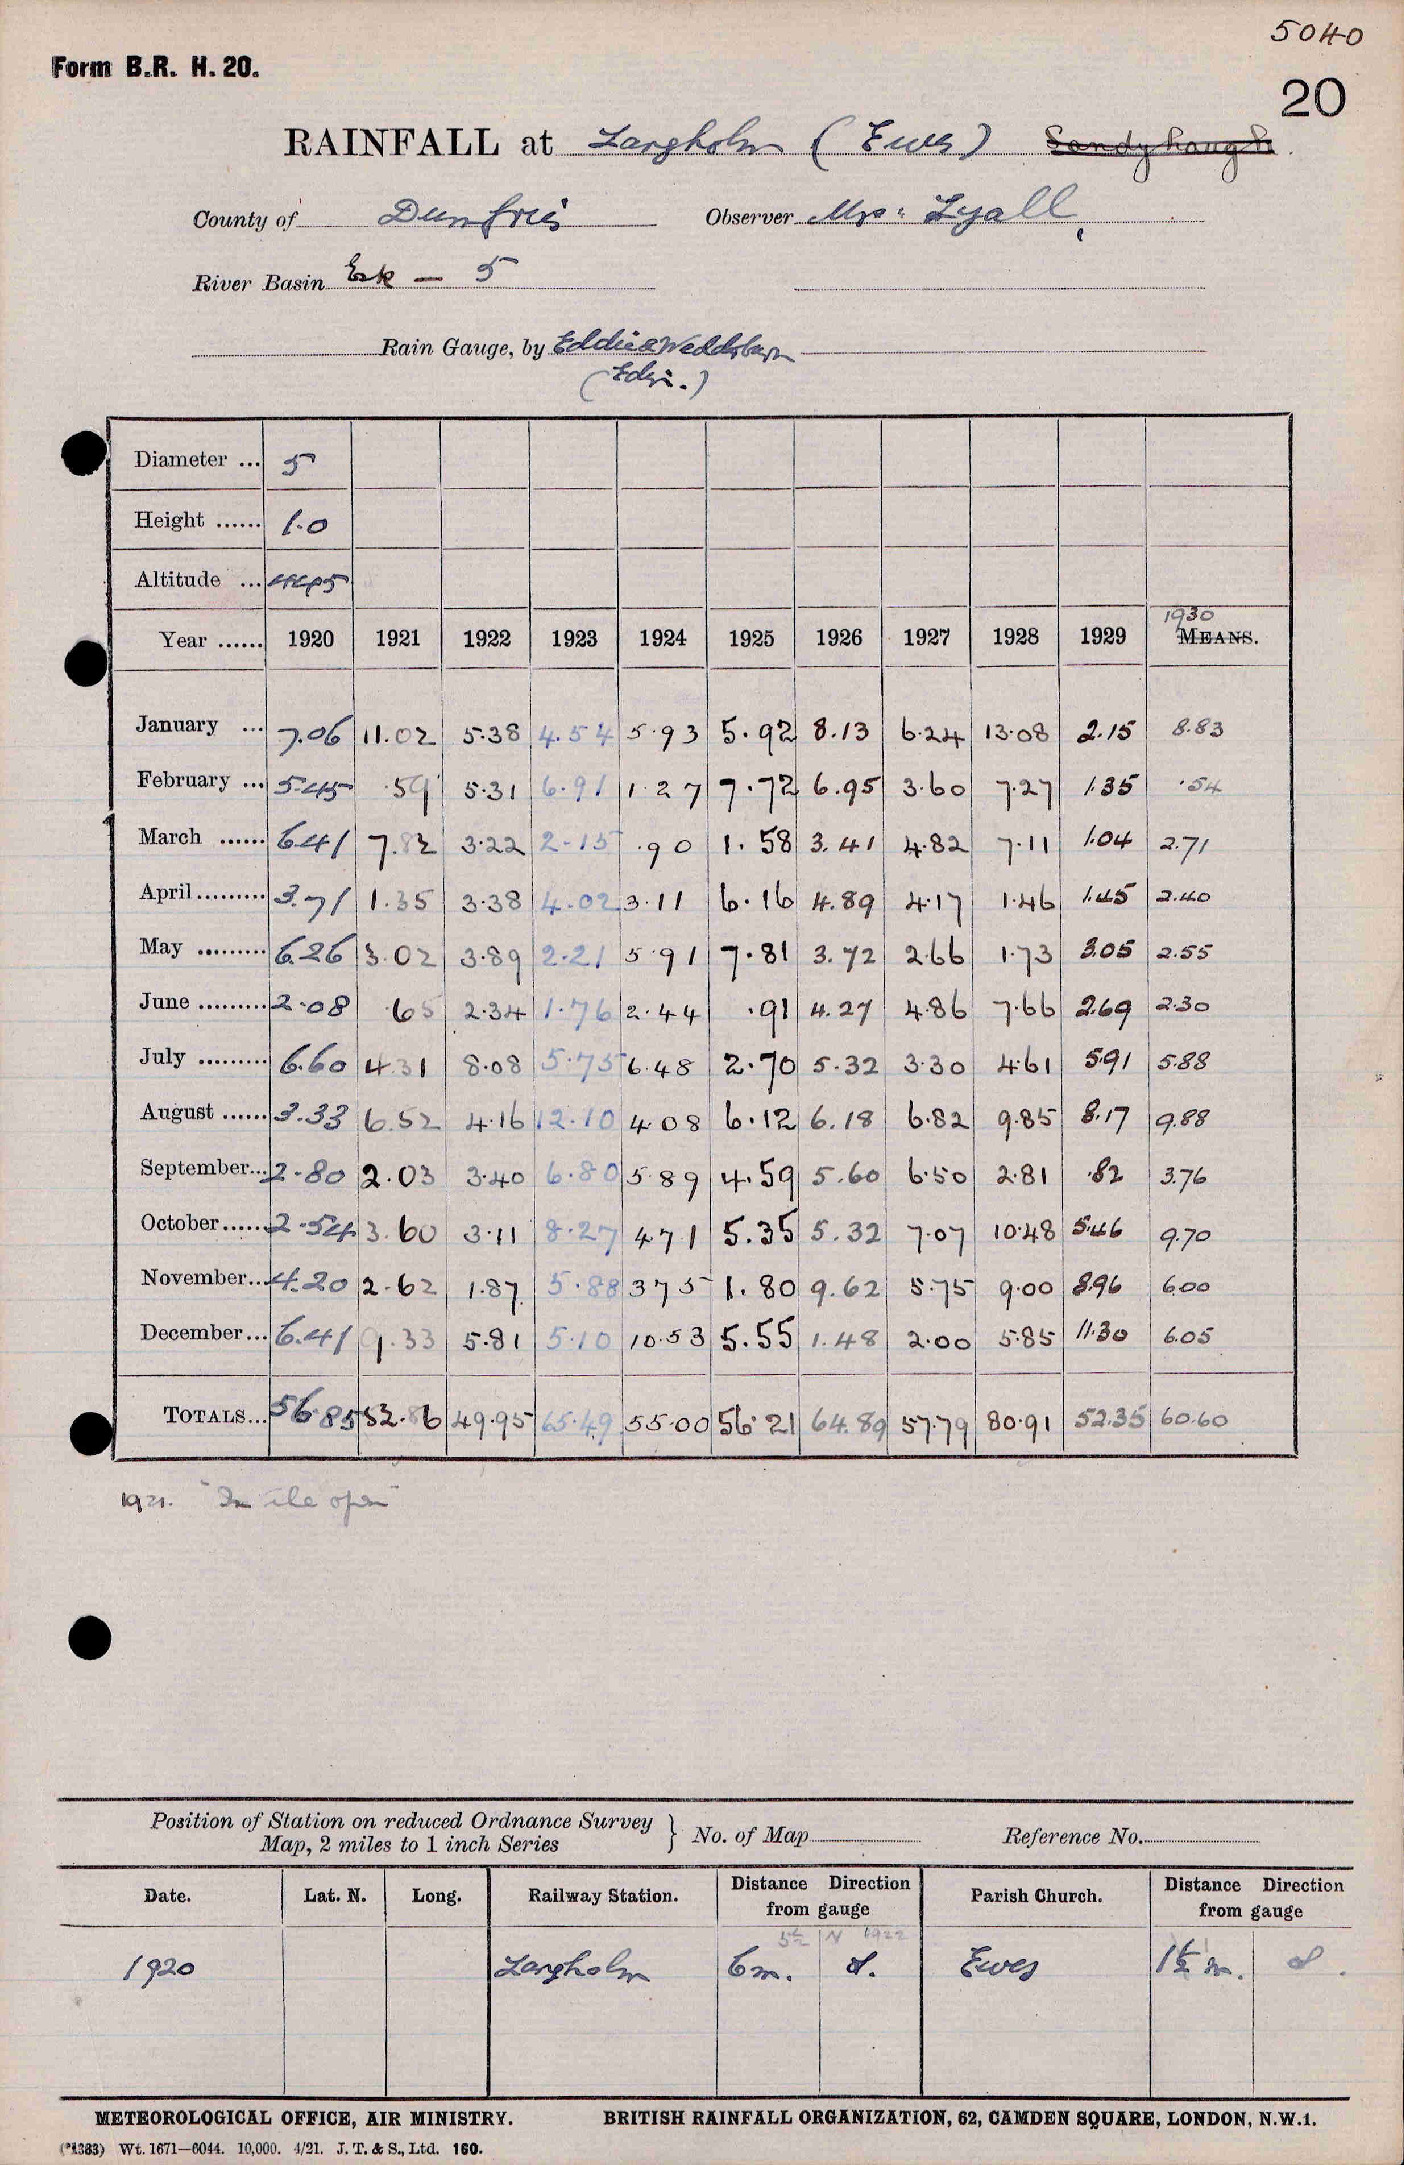 5040
Form B.R. H. 20.
20
RAINFALL at Langholm (Ewes) Sandyhaugh
County of Dumfries Observer Mrs: Lyall
River Basin Esk — 5
Rain Gauge, by Eddie & Wedderburn
(Edin.)
Diameter ... 5
Height ...... 1.0
Altitude ... 445
1930
Year ...... 1920 1921 1922 1923 1924 1925 1926 1927 1928 1929 MEANS.
January ... 7.06 11.02 5.38 4.54 5.93 5.92 8.13 6.24 13.08 2.15 8.83
February ... 5.45 .59 5.31 6.91 1.27 7.72 6.95 3.60 7.27 1.35 .54
March ...... 6.41 7.82 3.22 2.15 .90 1.58 3.41 4.82 7.11 1.04 2.71
April ......... 3.71 1.35 3.38 4.02 3.11 6.16 4.89 4.17 1.46 1.45 2.40
May ......... 6.26 3.02 3.89 2.21 5.91 7.81 3.72 2.66 1.73 3.05 2.55
June ......... 2.08 .65 2.34 1.76 2.44 .91 4.27 4.86 7.66 2.69 2.30
July ......... 6.60 4.31 8.08 5.75 6.48 2.70 5.32 3.30 4.61 5.91 5.88
August ...... 3.33 6.52 4.16 12.10 4.08 6.12 6.18 6.82 9.85 8.17 9.88
September... 2.80 2.03 3.40 6.80 5.89 4.59 5.60 6.50 2.81 .82 3.76
October...... 2.54 3.60 3.11 8.27 4.71 5.35 5.32 7.07 10.48 5.46 9.70
November... 4.20 2.62 1.87 5.88 3.75 1.80 9.62 5.75 9.00 8.96 6.00
December... 6.41 9.33 5.81 5.10 10.53 5.55 1.48 2.00 5.85 11.30 6.05
TOTALS... 56.85 52.86 49.95 65.49 55.00 56.21 64.89 57.79 80.91 52.35 60.60
1921. "In the open"
Position of Station on reduced Ordnance Survey
Map, 2 miles to 1 inch Series } No. of Map Reference No.
Date. Lat. N. Long. Railway Station. Distance Direction from gauge Parish Church. Distance Direction from gauge
5½ N 1922
1920 Langholm 6m. S. Ewes 1½ m. S.
METEOROLOGICAL OFFICE, AIR MINISTRY. BRITISH RAINFALL ORGANIZATION, 62, CAMDEN SQUARE, LONDON, N.W.1.
(*1383) Wt. 1671—6044. 10,000. 4/21. J. T. & S., Ltd. 160.